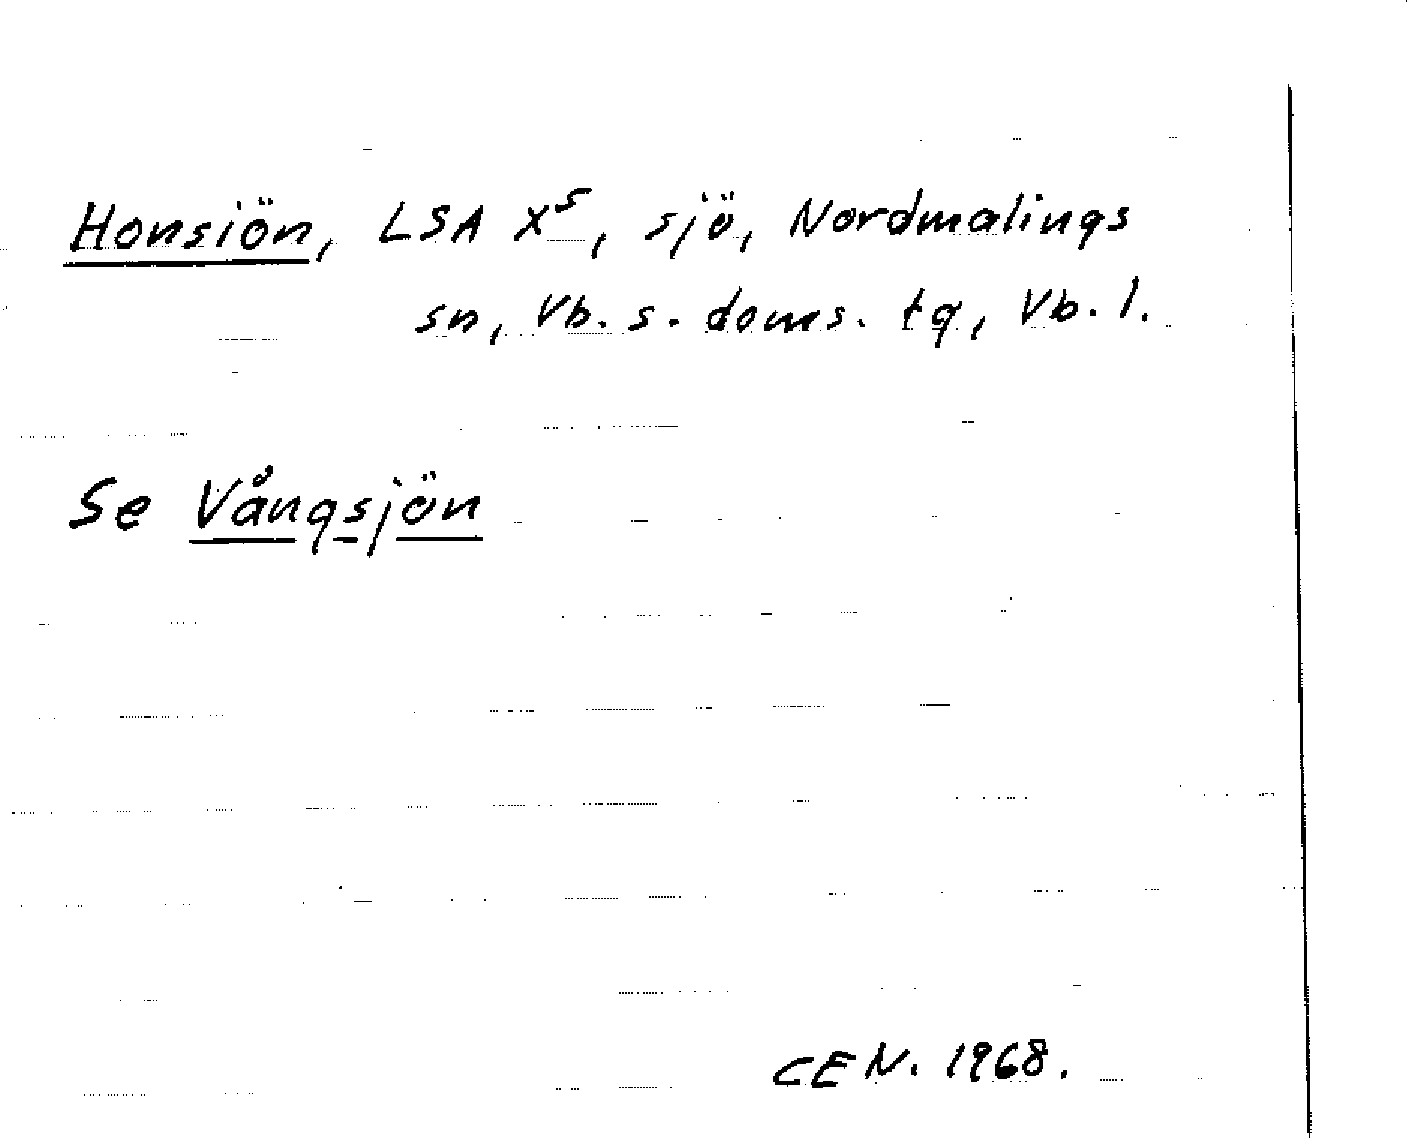 Honsiön, LSA X⁵, sjö, Nordmalings
sn, Vb. s. doms. tg, Vb. l.
Se Vångsjön
CEN. 1968.